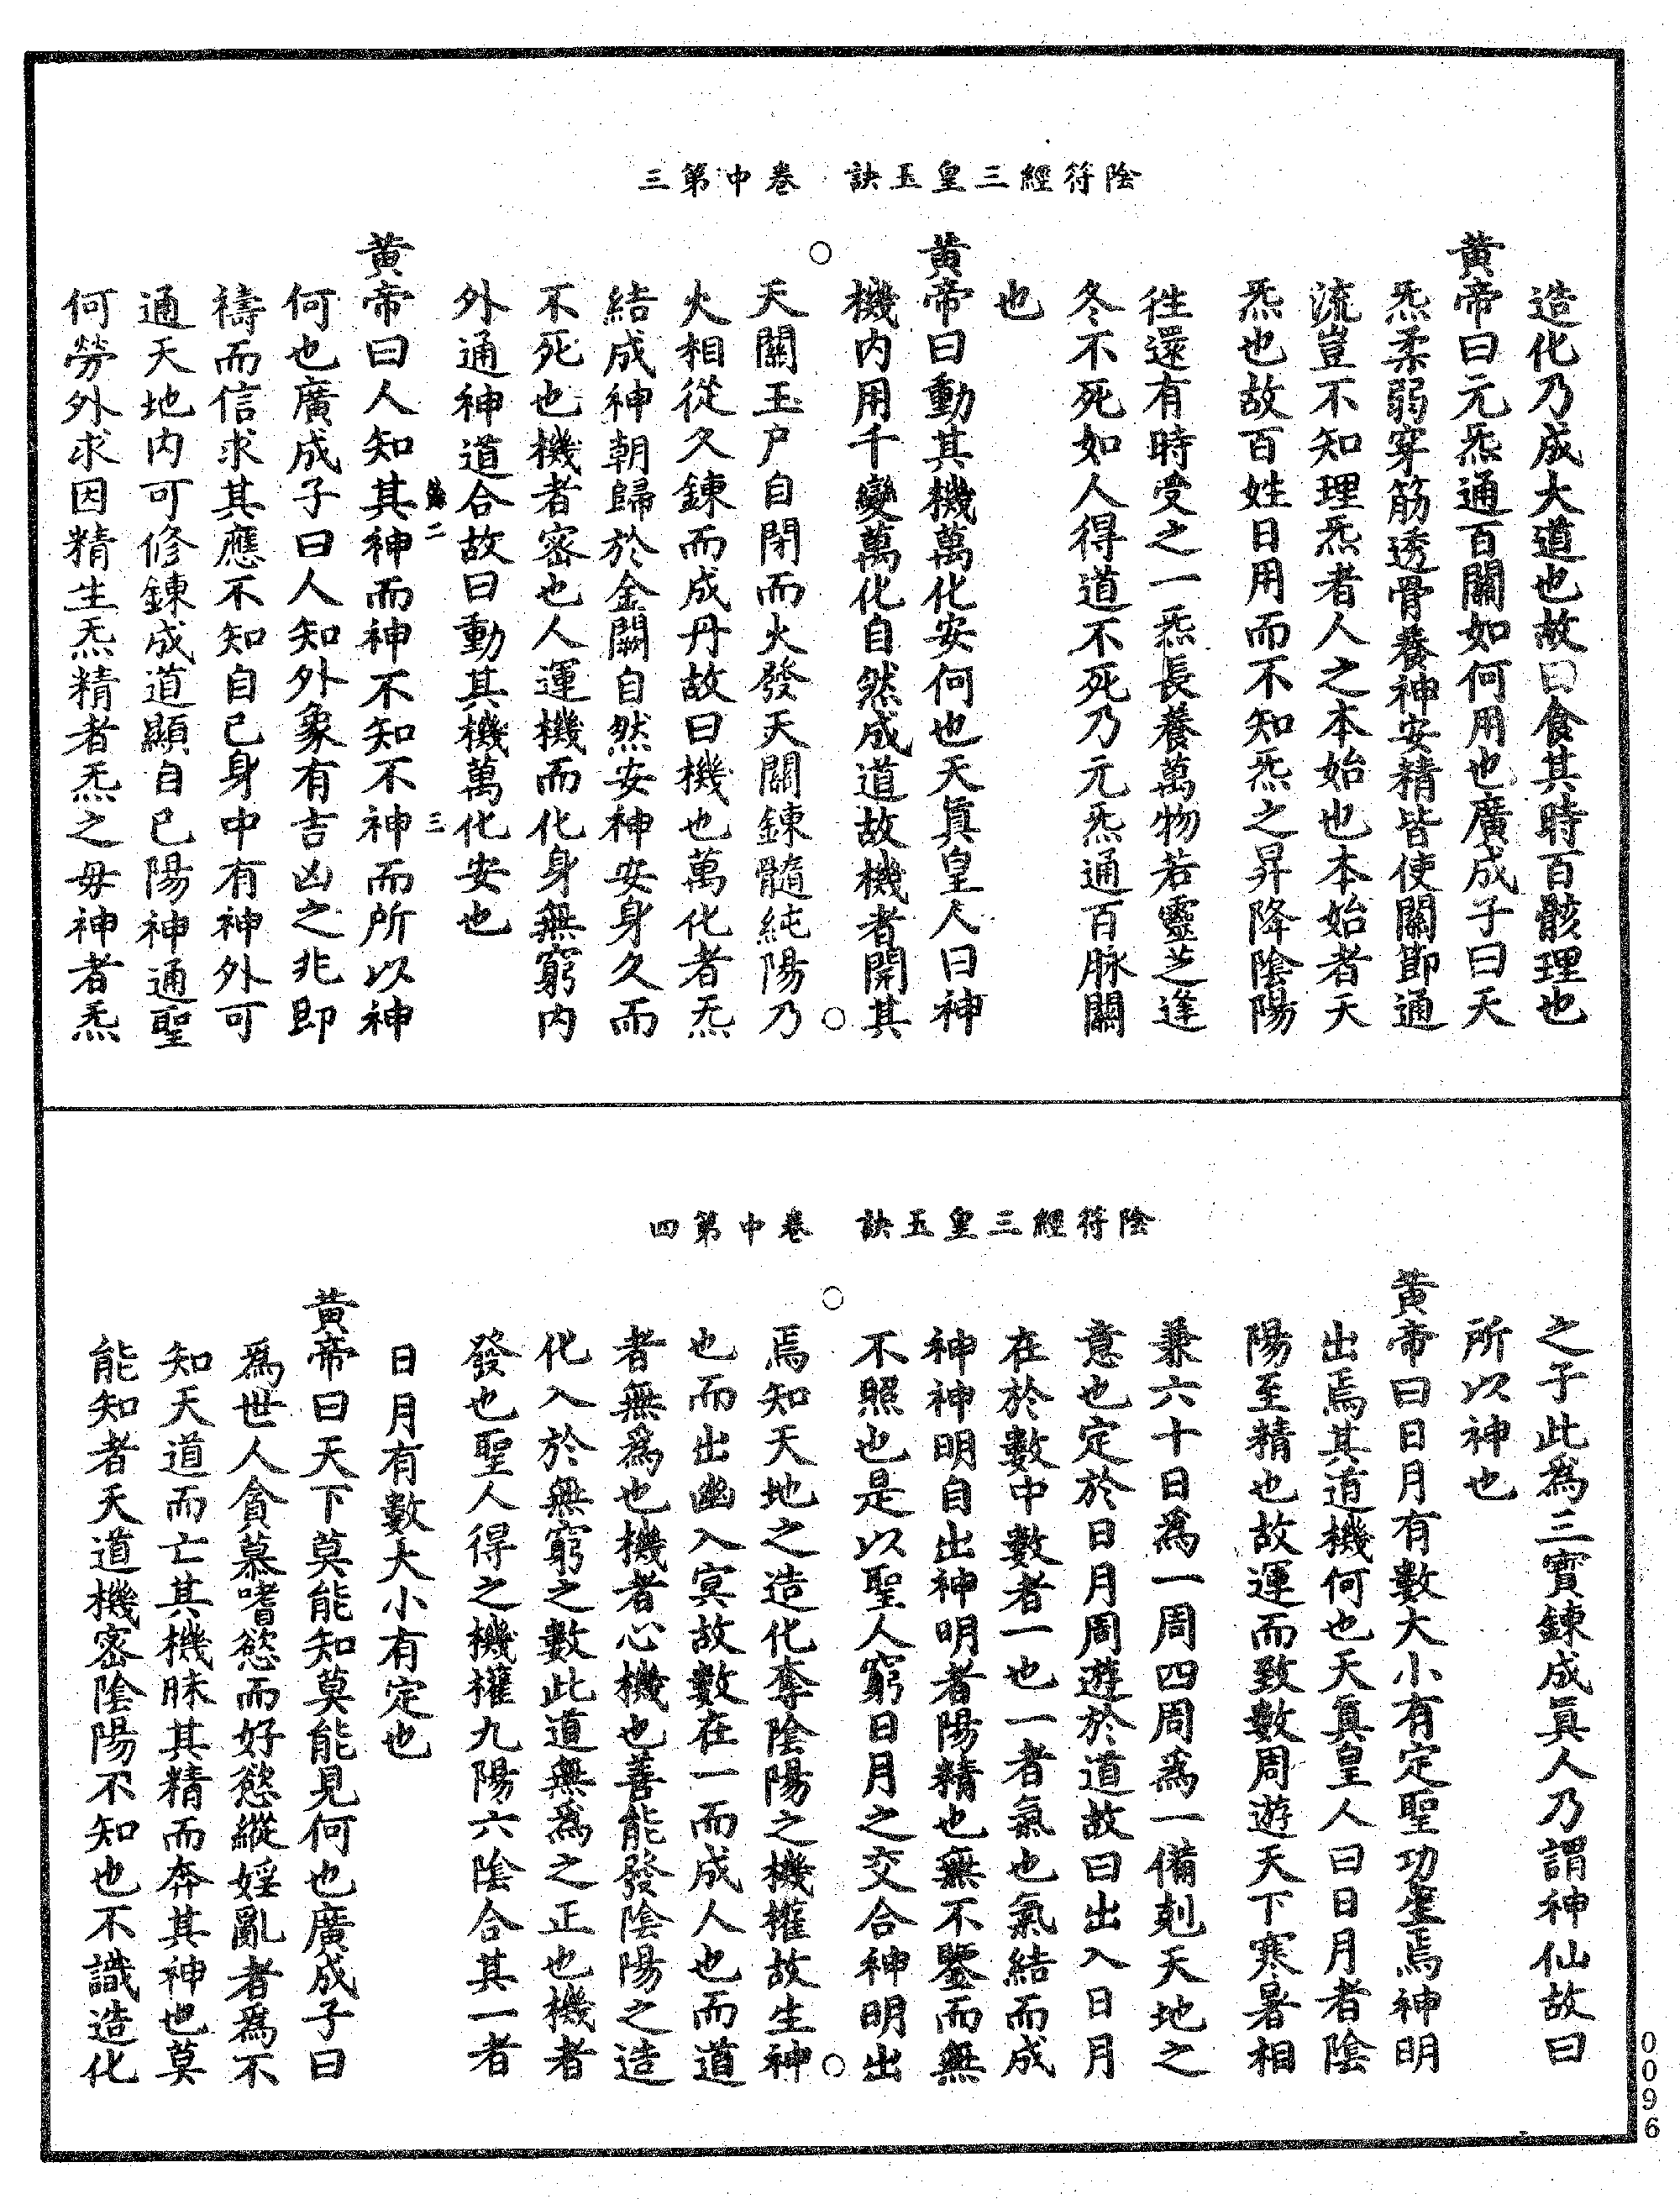 陰符經三皇玉訣　卷中第三
造化乃成大道也故曰食其時百骸理也
黃帝曰元炁通百關如何用也廣成子曰天
炁柔弱穿筋透骨養神安精皆使關節通
流豈不知理炁者人之本始也本始者天
炁也故百姓日用而不知炁之昇降陰陽
往還有時受之一炁長養萬物若靈芝逢
冬不死如人得道不死乃元炁通百脉關
也
黃帝曰動其機萬化安何也天眞皇人曰神
機內用千變萬化自然成道故機者開其
天關玉户自閉而火發天關鍊髓純陽乃
火相從久鍊而成丹故曰機也萬化者炁
結成神朝歸於金闕自然安神安身久而
不死也機者密也人運機而化身無窮內
外通神道合故曰動其機萬化安也
二　三
黃帝曰人知其神而神不知不神而所以神
何也廣成子曰人知外象有吉凶之兆即
禱而信求其應不知自己身中有神外可
通天地內可修鍊成道顯自己陽神通聖
何勞外求因精生炁精者炁之母神者炁
陰符經三皇玉訣　卷中第四
之子此爲三寶鍊成眞人乃謂神仙故曰
所以神也
黃帝曰日月有數大小有定聖功生焉神明
出焉其道機何也天眞皇人曰日月者陰
陽至精也故運而致數周遊天下寒暑相
兼六十日爲一周四周爲一備剋天地之
意也定於日月周遊於道故曰出入日月
在於數中數者一也一者氣也氣結而成
神神明自出神明者陽精也無不鑒而無
不照也是以聖人窮日月之交合神明出
焉知天地之造化奪陰陽之機權故生神
也而出幽入冥故數在一而成人也而道
者無爲也機者心機也善能發陰陽之造
化入於無窮之數此道無爲之正也機者
發也聖人得之機權九陽六陰合其一者
日月有數大小有定也
黃帝曰天下莫能知莫能見何也廣成子曰
爲世人貪慕嗜慾而好慾縱婬亂者爲不
知天道而亡其機昧其精而奔其神也莫
能知者天道機密陰陽不知也不識造化
0096